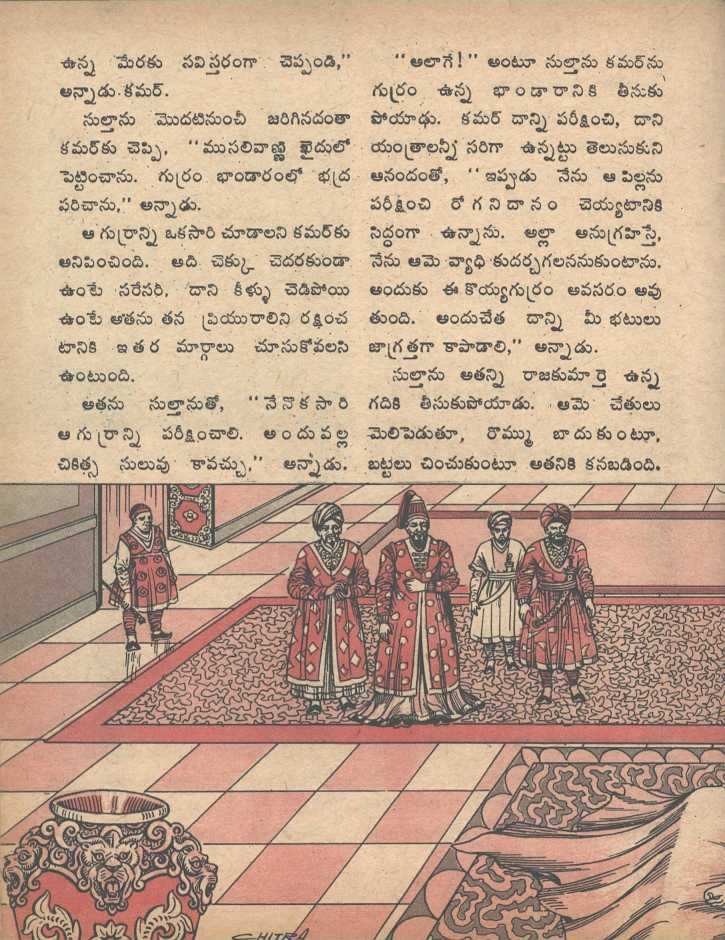 ఉన్న మేరకు సవిస్తరంగా చెప్పండి,"
అన్నాడు కమర్.
సుల్తాను మొదటినుంచీ జరిగినదంతా
కమర్‌కు చెప్పి, "ముసలివాణ్ణి ఖైదులో
పెట్టించాను. గుర్రం భాండారంలో భద్ర
పరిచాను," అన్నాడు.
ఆ గుర్రాన్ని ఒకసారి చూడాలని కమర్‌కు
అనిపించింది. అది చెక్కు చెదరకుండా
ఉంటే సరేసరి, దాని కీళ్ళు చెడిపోయి
ఉంటే అతను తన ప్రియురాలిని రక్షించ
టానికి ఇతర మార్గాలు చూసుకోవలసి
ఉంటుంది.
అతను సుల్తానుతో, "నేనొకసారి
ఆ గుర్రాన్ని పరీక్షించాలి. అందువల్ల
చికిత్స సులువు కావచ్చు," అన్నాడు.
"అలాగే!" అంటూ సుల్తాను కమర్‌ను
గుర్రం ఉన్న భాండారానికి తీసుకు
పోయాడు. కమర్ దాన్ని పరీక్షించి, దాని
యంత్రాలన్నీ సరిగా ఉన్నట్టు తెలుసుకుని
ఆనందంతో, "ఇప్పడు నేను ఆ పిల్లను
పరీక్షించి రోగనిదానం చెయ్యటానికి
సిద్ధంగా ఉన్నాను. అల్లా అనుగ్రహిస్తే,
నేను ఆమె వ్యాధి కుదర్చగలననుకుంటాను.
అందుకు ఈ కొయ్యగుర్రం అవసరం అవు
తుంది. అందుచేత దాన్ని మీ భటులు
జాగ్రత్తగా కాపాడాలి," అన్నాడు.
సుల్తాను అతన్ని రాజకుమార్తె ఉన్న
గదికి తీసుకుపోయాడు. ఆమె చేతులు
మెలిపెడుతూ, రొమ్ము బాదుకుంటూ,
బట్టలు చించుకుంటూ అతనికి కనబడింది.
CHITRA